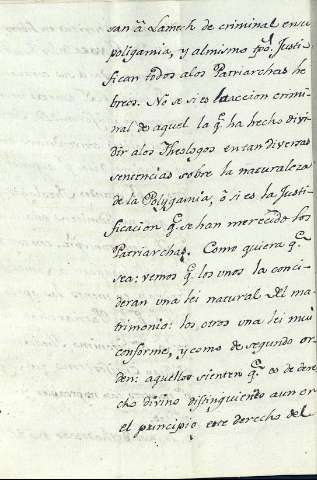 san â Lamech de criminal en su
poligamia, y al mismo tpô. Justi-
fican todos a los Patriarchas he
breos. No se si es la accion crimi-
nal de aquel la q.ᵉ ha hecho divi
dir a los Theologos en tan diversas
sentencias sobre la naturaleza
de la Polygamia, ô si es la Justi-
ficacion q.ᵉ se han merecido los
Patriarchas. Como quiera q.ᵉ
sea: vemos q.ᵉ los unos la conci-
deran una lei natural del ma-
trimonio: los otros una lei mui
conforme, y como de segundo or-
den: aquellos sienten q.ᵉ es de dere
cho divino distinguiendo aun en
el principio este derecho del